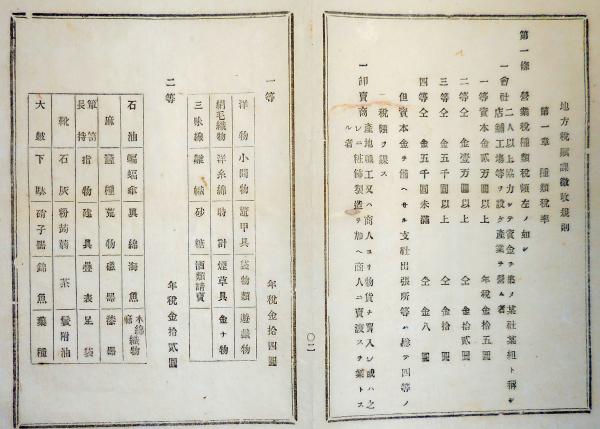 地方税賦課徴收規則
第一章 種類税率
第一條 營業税種類税額左ノ如シ
一會社 二人以上協力シテ資金ヲ集メ某社某組ト稱シ
店舗工塲等ヲ設ケ産業ヲ營ム者
一等資本金貳万圓以上 年税金拾五圓
二等仝 金壹万圓以上 仝 金拾貳圓
三等仝 金五千圓以上 仝 金拾圓
四等仝 金五千圓未滿 仝 金八圓
但資本金ヲ備ヘサル支社出張所等ハ總テ四等ノ
税額ヲ課ス
一卸賣商 産地職工又ハ商人ヨリ物貨ヲ買入シ或ハ之
レニ粧飾製造ヲ加ヘ商人ニ賣渡スヲ業トス
ル者
〇二
一等 年税金拾四圓
洋物 小間物 鼈甲具 袋物類 遊戯物
絹毛織物 洋糸綿 時計 煙草具 金ナ物
三味線 砂糖 酒類請賣
二等 年税金拾貳圓
石油 蝙蝠傘 眞綿 海魚 木綿織物
麻 種 荒物 磁器 漆器
簞笥 長持 指物 建具 疊表 足袋
靴 石灰 粉蒟蒻 茶 鬢附油
大皷 下駄 硝子器 錦魚 藥種